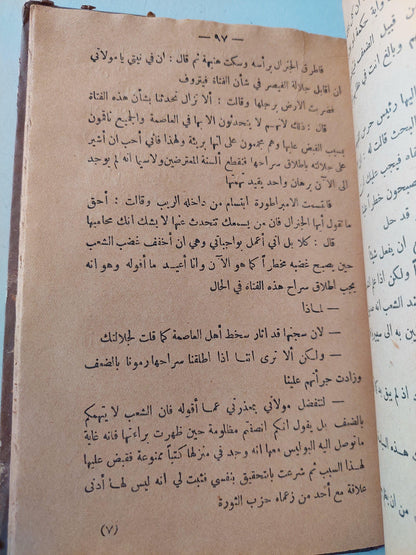 — ٩٧ —
فاطرق الجنرال برأسه وسكت هنيهة ثم قال : ان في نيتي يا مولاتي
ان اقابل جلالة القيصر في شأن الفتاة فيتروف
فضربت الارض برجلها وقالت : ألا نزال نتحدثنا بشأن هذه الفتاة
قال : ذلك لانهم لا يتحدثون الا بها في العاصمة والجميع ناقمون
بسبب القبض عليها وهم مجمعون على أنها بريئة ولهذا فاني أحب أن أشير
على جلالته باطلاق سراحها فتقطع ألسنة المعترضين ولاسيما انه لم يوجد
الى الآن برهان واحد يفيد تهمتها
فابتسمت الامبراطورة ابتسام من داخله الريب وقالت : أحق
ما تقول أيها الجنرال فان من يسمعك تتحدث عنها لا يشك انك محاميها
قال : كلا بل اني أعمل بواجباتي وهي ان أخفف غضب الشعب
حين يصبح غضبه مخطراً كما هو الآن وانا أعيد ما أقوله وهو انه
يجب اطلاق سراح هذه الفتاة في الحال
— لماذا
— لان سجنها قد اثار سخط أهل العاصمة كما قلت لجلالتك
— ولكن ألا ترى اننا اذا اطلقنا سراحها رمونا بالضعف
وزادت جرأتهم علينا
— لتتفضل مولاتي بمعذرتي عما أقوله فان الشعب لا يتهمكم
بالضعف بل يقول انكم انصفتم مظلومة حين ظهرت براءتها فانه غاية
ما توصل اليه البوليس معها انه وجد في منزلها كتباً ممنوعة فقبض عليها
لهذا السبب ثم شرعت بالتحقيق بنفسي فثبت لي انه ليس لها أدنى
علاقة مع أحد من زعماء حزب الثورة
(٧)